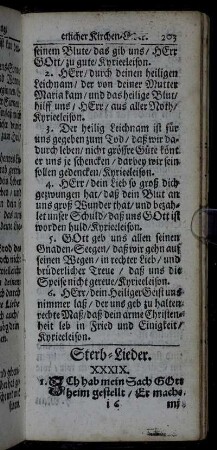 etlicher Kirchen-Ges. 203
seinem Blute/ das gib uns/ HErr
GOtt/ zu gute/ Kyrieeleison.
2. HErr/ durch deinen heiligen
Leichnam/ der von deiner Mutter
Maria kam/ und das heilige Blut/
hilff uns/ HErr/ aus aller Noth/
Kyrieeleison.
3. Der heilig Leichnam ist für
uns gegeben zum Tod/ daß wir da-
durch leben/ nicht grössre Güte könt
er uns je schencken/ darbey wir sein
sollen gedencken/ Kyrieeleison.
4. HErr/ dein Lieb so groß dich
gezwungen hat/ daß dein Blut an
uns groß Wunder that/ und bezah-
let unser Schuld/ daß uns GOtt ist
worden huld/ Kyrieeleison.
5. GOtt geb uns allen seinen
Gnaden-Seegen/ daß wir gehn auf
seinen Wegen/ in rechter Lieb/ und
brüderlicher Treue/ daß uns die
Speise nicht gereue/ Kyrieeleison.
6. HErr/ dein Heiliger Geist uns
nimmer laß/ der uns geb zu halten
rechte Maß/ daß dein arme Christen-
heit leb in Fried und Einigkeit/
Kyrieeleison.
Sterb-Lieder.
XXXIX.
1. ICh hab mein Sach GOtt
heim gestellt/ Er machs
i 6 mit